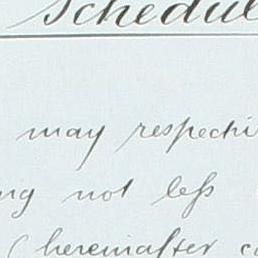 Schedul
may respecti
ng not less
(hereinafter c